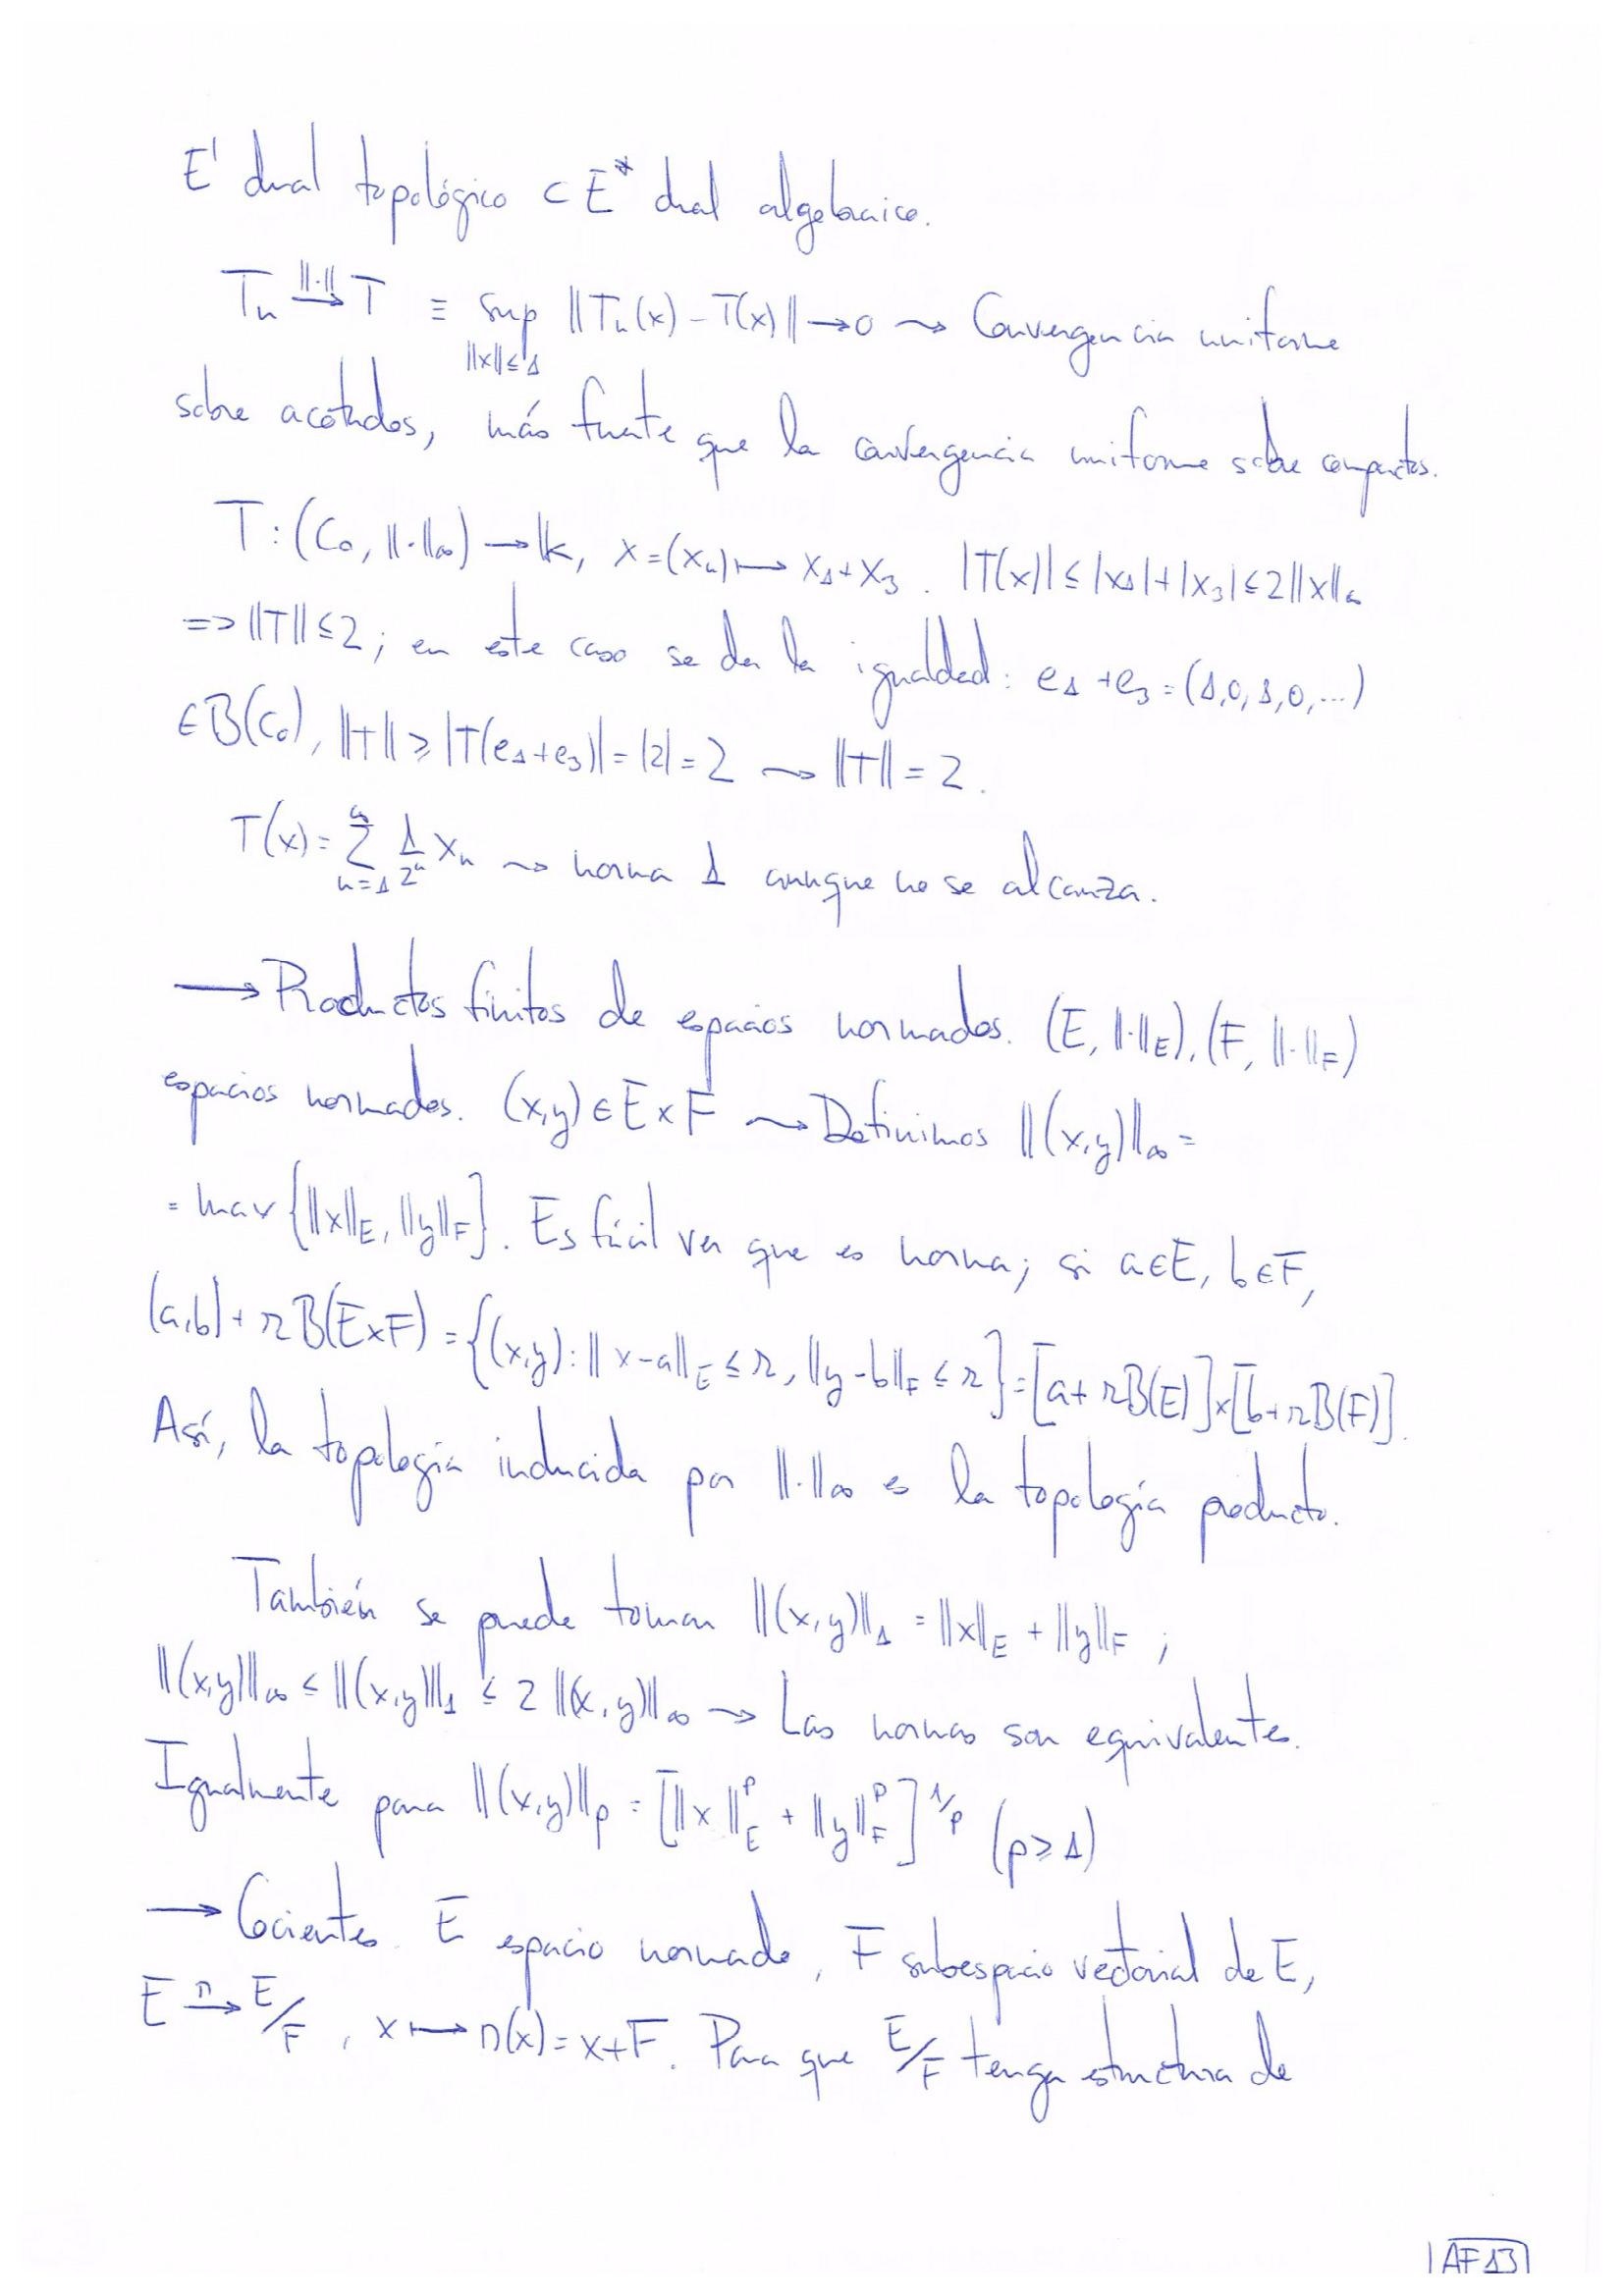 E' dual topológico ⊂ E* dual algebraico.
Tₙ →^{‖·‖} T ≡ sup_{‖x‖≤1} ‖Tₙ(x) − T(x)‖ → 0 ⇝ Convergencia uniforme
sobre acotados, más fuerte que la convergencia uniforme sobre compactos.
T: (C₀, ‖·‖∞) → 𝕂, x = (xₙ) ↦ x₁ + x₃. |T(x)| ≤ |x₁| + |x₃| ≤ 2‖x‖∞
=> ‖T‖ ≤ 2; en este caso se da la igualdad: e₁ + e₃ = (1,0,1,0,...)
∈ B(C₀), ‖T‖ ≥ |T(e₁+e₃)| = |2| = 2 ⇝ ‖T‖ = 2.
T(x) = ∑_{n=1}^{∞} 1/2ⁿ xₙ ⇝ norma 1 aunque no se alcanza.
→ Productos finitos de espacios normados. (E, ‖·‖_E), (F, ‖·‖_F)
espacios normados. (x,y) ∈ E × F ⇝ Definimos ‖(x,y)‖∞ =
= max {‖x‖_E, ‖y‖_F}. Es fácil ver que es norma; si a∈E, b∈F,
(a,b) + rB(E×F) = {(x,y) : ‖x−a‖_E ≤ r, ‖y−b‖_F ≤ r} = [a + rB(E)] × [b + rB(F)].
Así, la topología inducida por ‖·‖∞ es la topología producto.
También se puede tomar ‖(x,y)‖₁ = ‖x‖_E + ‖y‖_F ;
‖(x,y)‖∞ ≤ ‖(x,y)‖₁ ≤ 2 ‖(x,y)‖∞ ⇝ Las normas son equivalentes.
Igualmente para ‖(x,y)‖_p = [‖x‖_E^p + ‖y‖_F^p]^{1/p} (p ≥ 1)
→ Cocientes. E espacio normado, F subespacio vectorial de E,
E →^{π} E/F, x ↦ π(x) = x+F. Para que E/F tenga estructura de
AF13